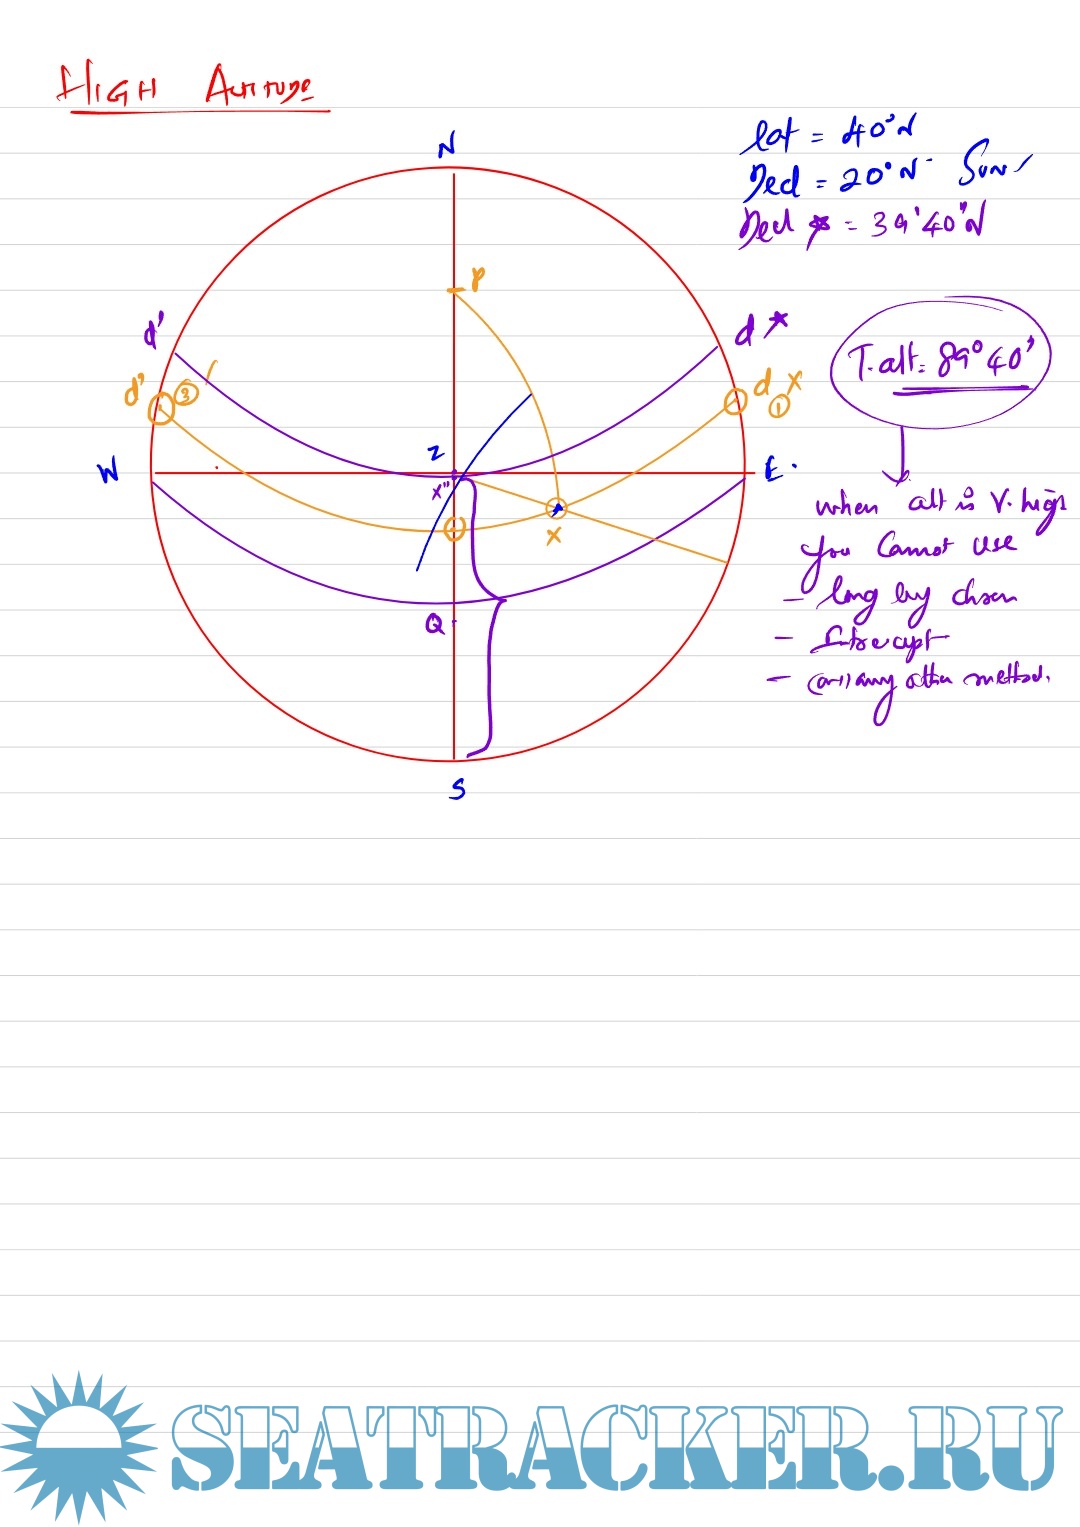 HIGH Altitude
lat = 40°N
Decl = 20°N Sun
Decl ☆ = 39'40"N
N
P
d'
d ☆
T.alt = 89°40'
d' ③
d X
①
W
Z
E.
X"
X
when alt is V. high
you cannot use
- long by chron
- Intercept
- any other method.
Q
S
SEATRACKER.RU